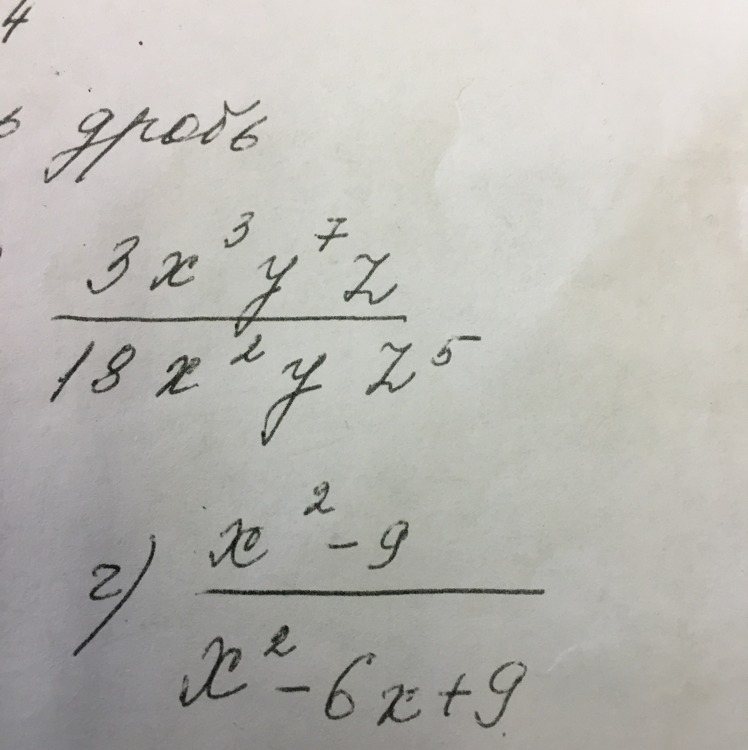 4
ь дробь
3x³y⁷z
18x²yz⁵
г) x²-9
x²-6x+9